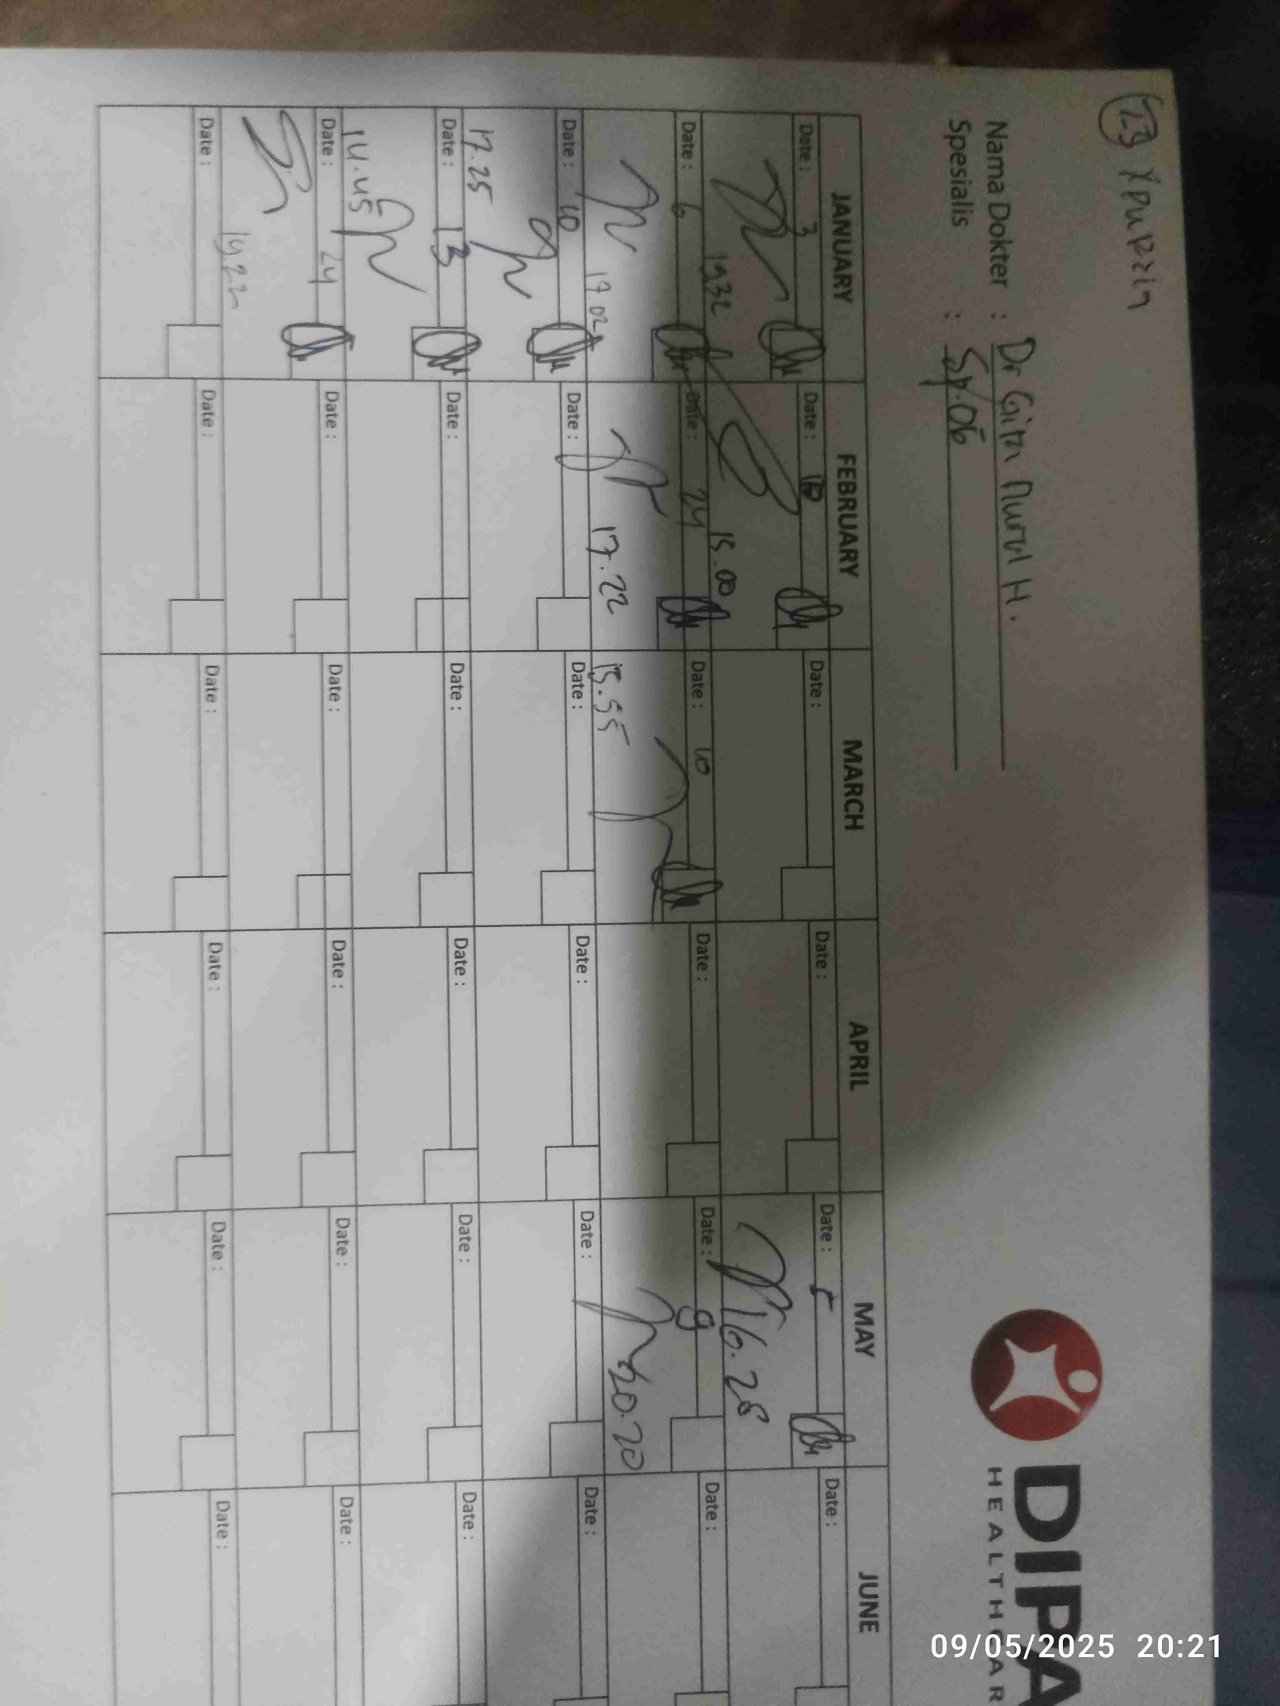 23
Nama Dokter : Dr Gita Nurul H.
Spesialis : Sp.OG
DIPA
HEALTHCAR
JANUARY FEBRUARY MARCH APRIL MAY JUNE
Date : 3 Date : Date : Date : Date : 5 Date :
19.32 15.00 16.28
Date : 6 Date : 24 Date : 10 Date : Date : 9 Date :
17.02 17.22 15.55 20.20
Date : 10 Date : Date : Date : Date : Date :
17.25
Date : 13 Date : Date : Date : Date : Date :
14.45
Date : 24 Date : Date : Date : Date : Date :
19.22
Date : Date : Date : Date : Date : Date :
09/05/2025 20:21